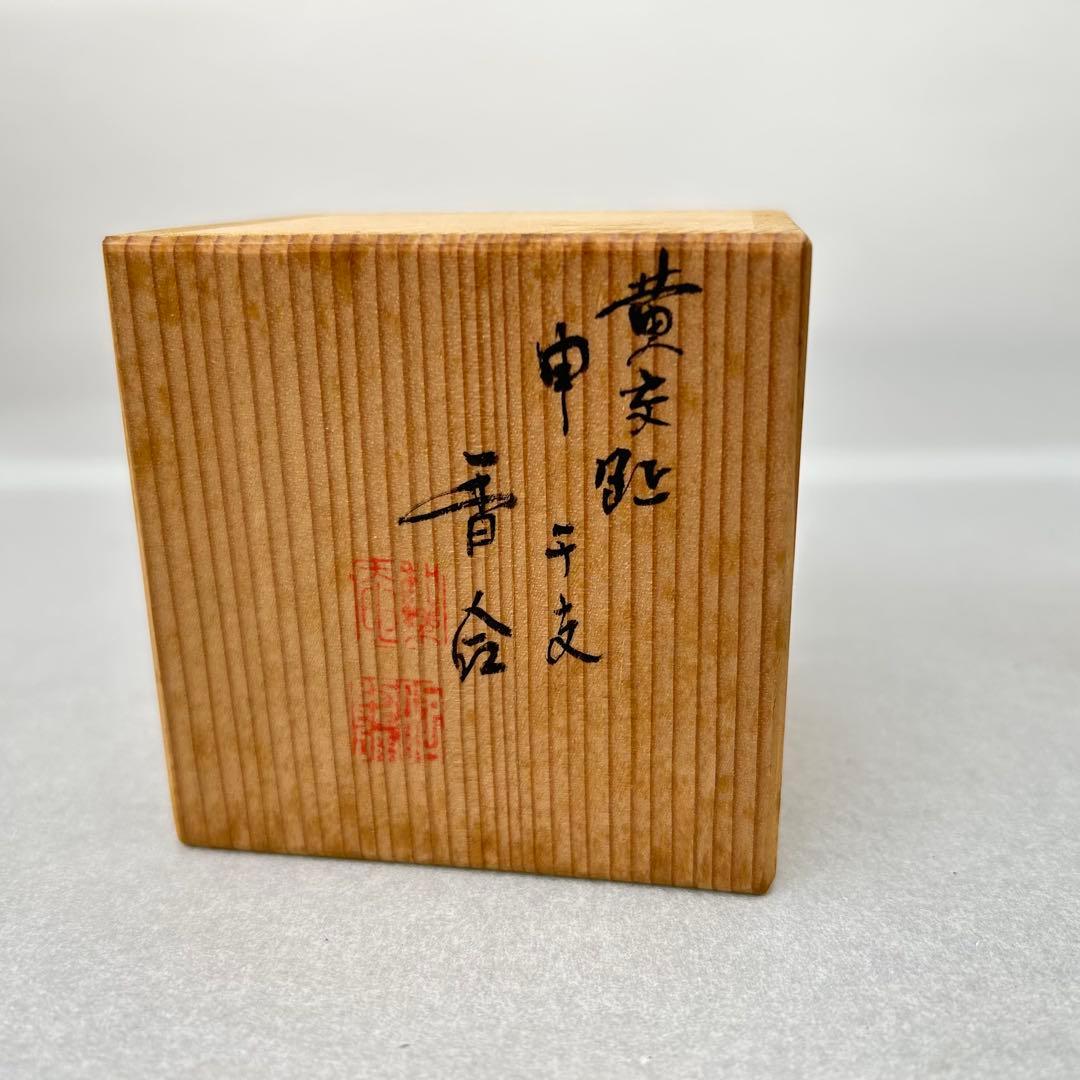 黄交趾
申干支
香合